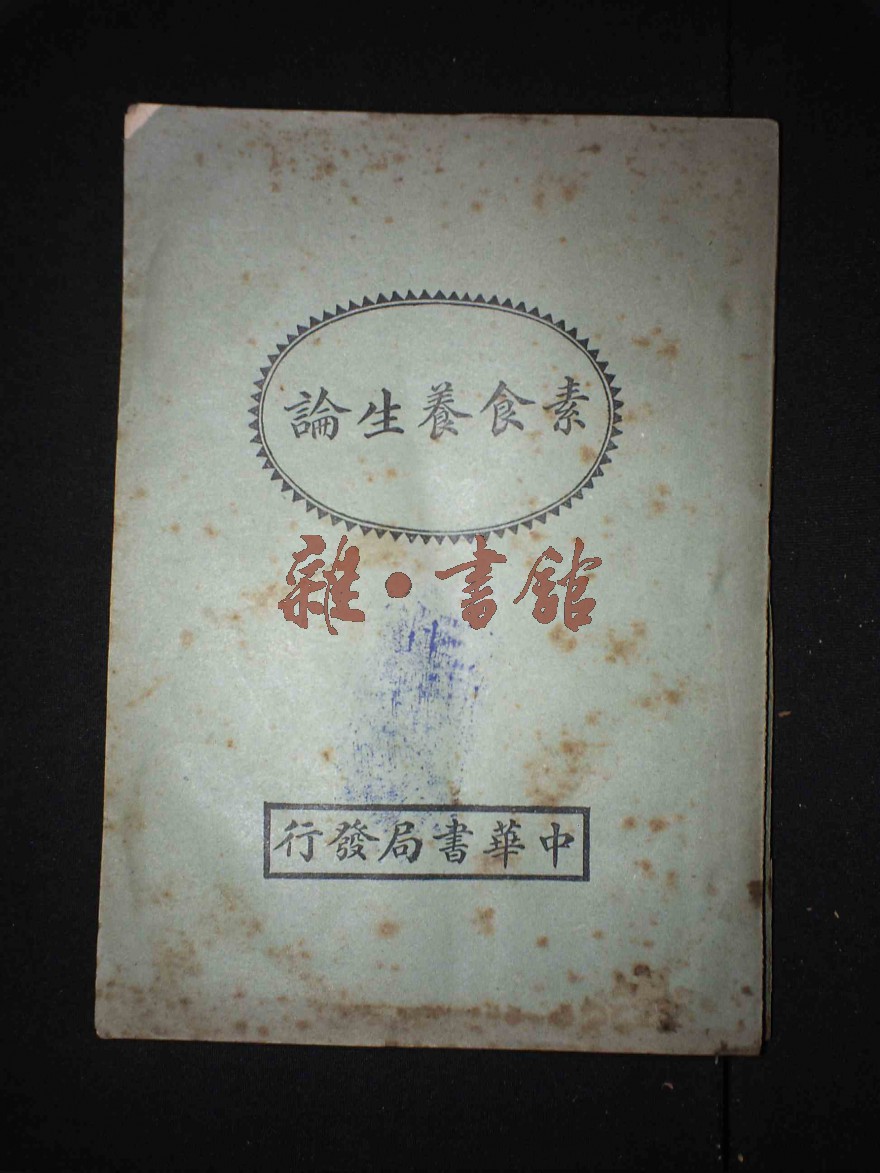 素食養生論
雜·書館
中華書局發行